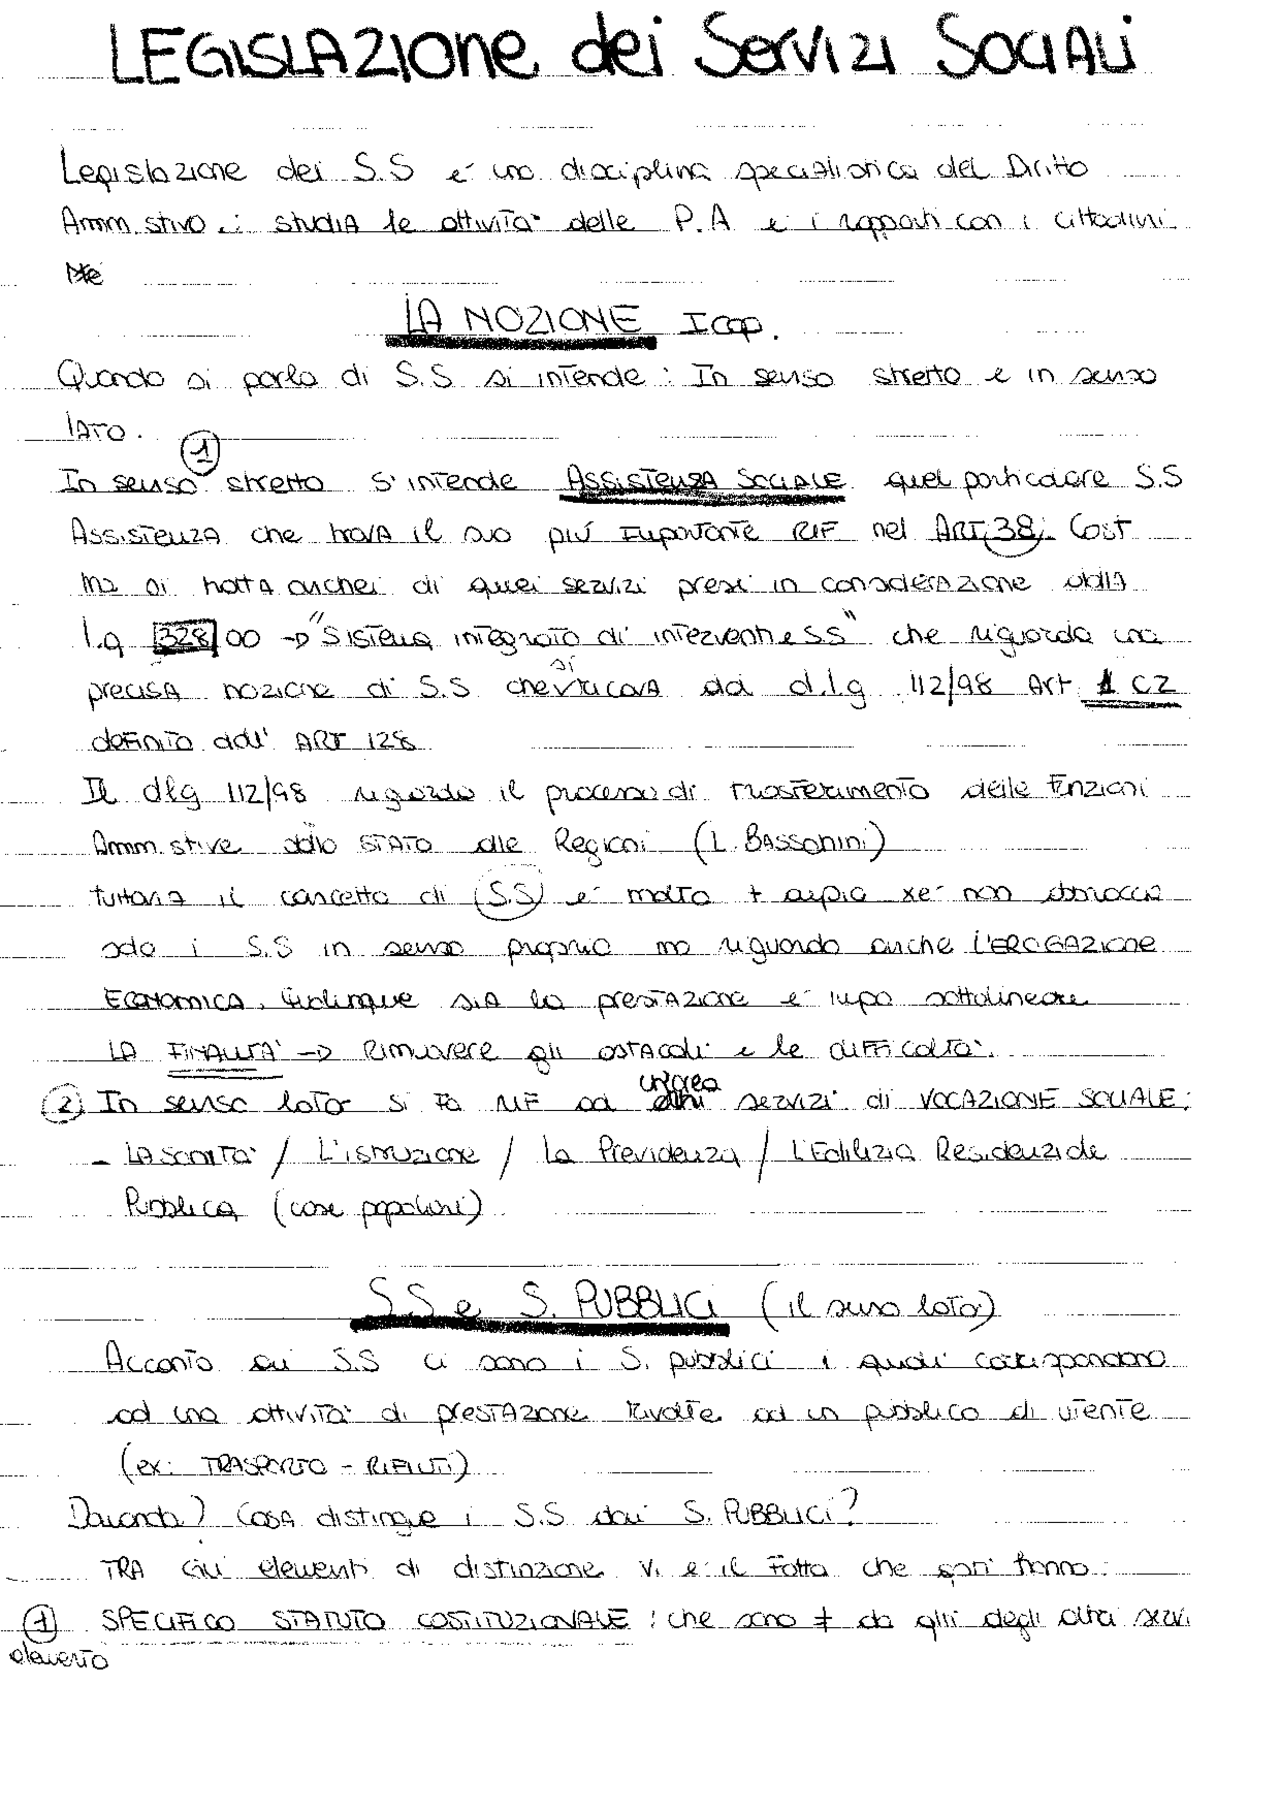 LEGISLAZIONE dei SERVIZI SOCIALI
Legislazione dei S.S è una disciplina specialistica del Diritto
Amm.stivo : studia le attività delle P.A e i rapporti con i cittadini
LA NOZIONE I cap.
Quando si parla di S.S si intende : In senso stretto e in senso
lato.
1
In senso stretto s'intende Assistenza Sociale quel particolare S.S
Assistenza che trova il suo più importante RIF nel ART. 38, Cost
ma si tratta anche di quei servizi presi in considerazione dalla
l.q 328/00 → "Sistema integrato di interventi e SS" che riguarda una
precisa nozione di S.S che si ricava dal d.lg 112/98 Art 1 C2
definito dall' ART 128
Il dlg 112/98 riguarda il processo di trasferimento delle funzioni
Amm.stive dallo STATO alle Regioni (L. Bassanini)
tuttavia il concetto di (S.S) è molto + ampio xè non abbraccia
solo i S.S in senso proprio ma riguarda anche L'EROGAZIONE
ECONOMICA. Qualinque sia la prestazione è impo sottolineare
LA FINALITÀ → Rimuovere gli ostacoli e le difficoltà.
2 In senso lato si fa RIF ad un'area servizi di VOCAZIONE SOCIALE:
- LA SANITÀ / L'istruzione / la Previdenza / L'Edilizia Residenziale
Pubblica (case popolari)
S.S e S. PUBBLICI (il senso lato)
Accanto ai S.S ci sono i S. pubblici i quali corrispondono
ad una attività di prestazione rivolte ad un pubblico di utente
(ex: TRASPORTO - RIFIUTI)
Domanda? Cosa distingue i S.S dai S. PUBBLICI?
TRA gli elementi di distinzione vi è il fatto che essi hanno:
1 SPECIFICO STATUTO COSTITUZIONALE : che sono ≠ da qlli degli altri servi
elemento